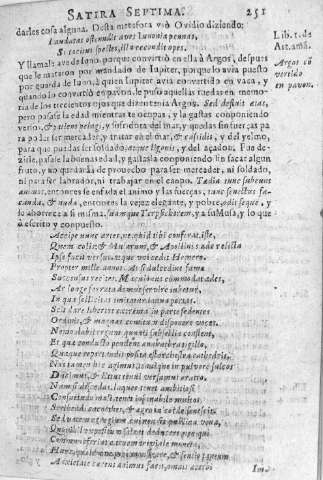 SATIRA SEPTIMA. 251
darles cosa alguna. Desta metafora vsò Ouidio diziendo:
Laudatas ostendit aues Iunonia pennas,
Si tacitus spectes, illa recondit opes.
Y llamala aue de Iuno, porque conuirtiò en ella à Argos, despues
que le mataron por mandado de Iupiter, porque lo auia puesto
por guarda de Io, à quien Iupiter auia conuertido en vaca, y
quando le conuirtiò en pauon, le puso aquellas ruedas en memo-
ria de los trecientos ojos que dizen tenia Argos. Sed defluit ætas,
pero passase la edad mientras te ocupas, y la gastas componiendo
versos, & pelagi
y sufridora del mar, y quedas sin fuerças para
poder ser mercader, y tratar en el mar, & cassidis, y del yelmo,
para que puedas ser soldado, atque ligonis, y del açadon. Fue de-
zirle, passase la buena edad, y gastasla componiendo sin sacar algun
fruto, y no quedaràs de prouecho para ser mercader, ni soldado,
ni para ser labrador, ni trabajar en el campo. Tædia tunc subeunt
animos, entonces se enfada el animo y las fuerças, tunc senectus fa-
cunda, & nuda, entonces la vejez elegante, y pobre, odit seque, y
se aborrece a si misma, suamque Terpsichorem, y a su Musa, y lo que
à escrito y compuesto.
Accipe nunc artes, ne quid tibi conferat iste,
Quem colis; & Musarum, & Apollinis æde relicta
Ipse facit versus, atque vni cedit Homero,
Propter mille annos. At si dulcedine famæ
Succensus recites, Maculonis commodat ædes,
Ac longe ferrata domus seruire iubetur,
In qua sollicitas imitatur ianua portas.
Scit dare libertos extrema in parte sedentes
Ordinis, & magnas comitum disponere voces.
Nemo dabit regum quanti subsellia constent,
Et quæ conducto pendent anabathra tigillo,
Quæque reportandis posita est orchestra cathedris.
Nos tamen hoc agimus, tenuique in puluere sulcos
Ducimus, & littus sterili versamus aratro.
Nam si discedas, laqueo tenet ambitiosi
Consuetudo mali: tenet insanabile multos
Scribendi cacoethes, & ægro in corde senescit.
Sed vatem egregium, cui non sit publica vena,
Qui nihil expositum soleat deducere, nec qui
Communi feriat carmen triuiale moneta:
Hunc, qualem nequeo monstrare, & sentio tantum
Anxietate carens animus facit, omnis acerbi
Im-
Lib. 1. de
Art. amã.
Argos cõ
vertido
en pauon.